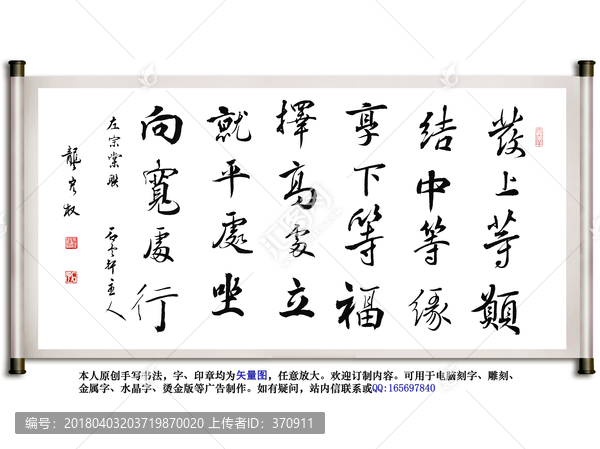 發上等願
結中等緣
享下等福
擇高處立
就平處坐
向寬處行
左宗棠聯
石雲軒主人
本人原创手写书法，字、印章均为矢量图，任意放大。欢迎订制内容。可用于电脑刻字、雕刻、
金属字、水晶字、烫金版等广告制作。如有疑问，站内信联系或QQ:165697840
编号：20180403203719870020 上传者ID：370911